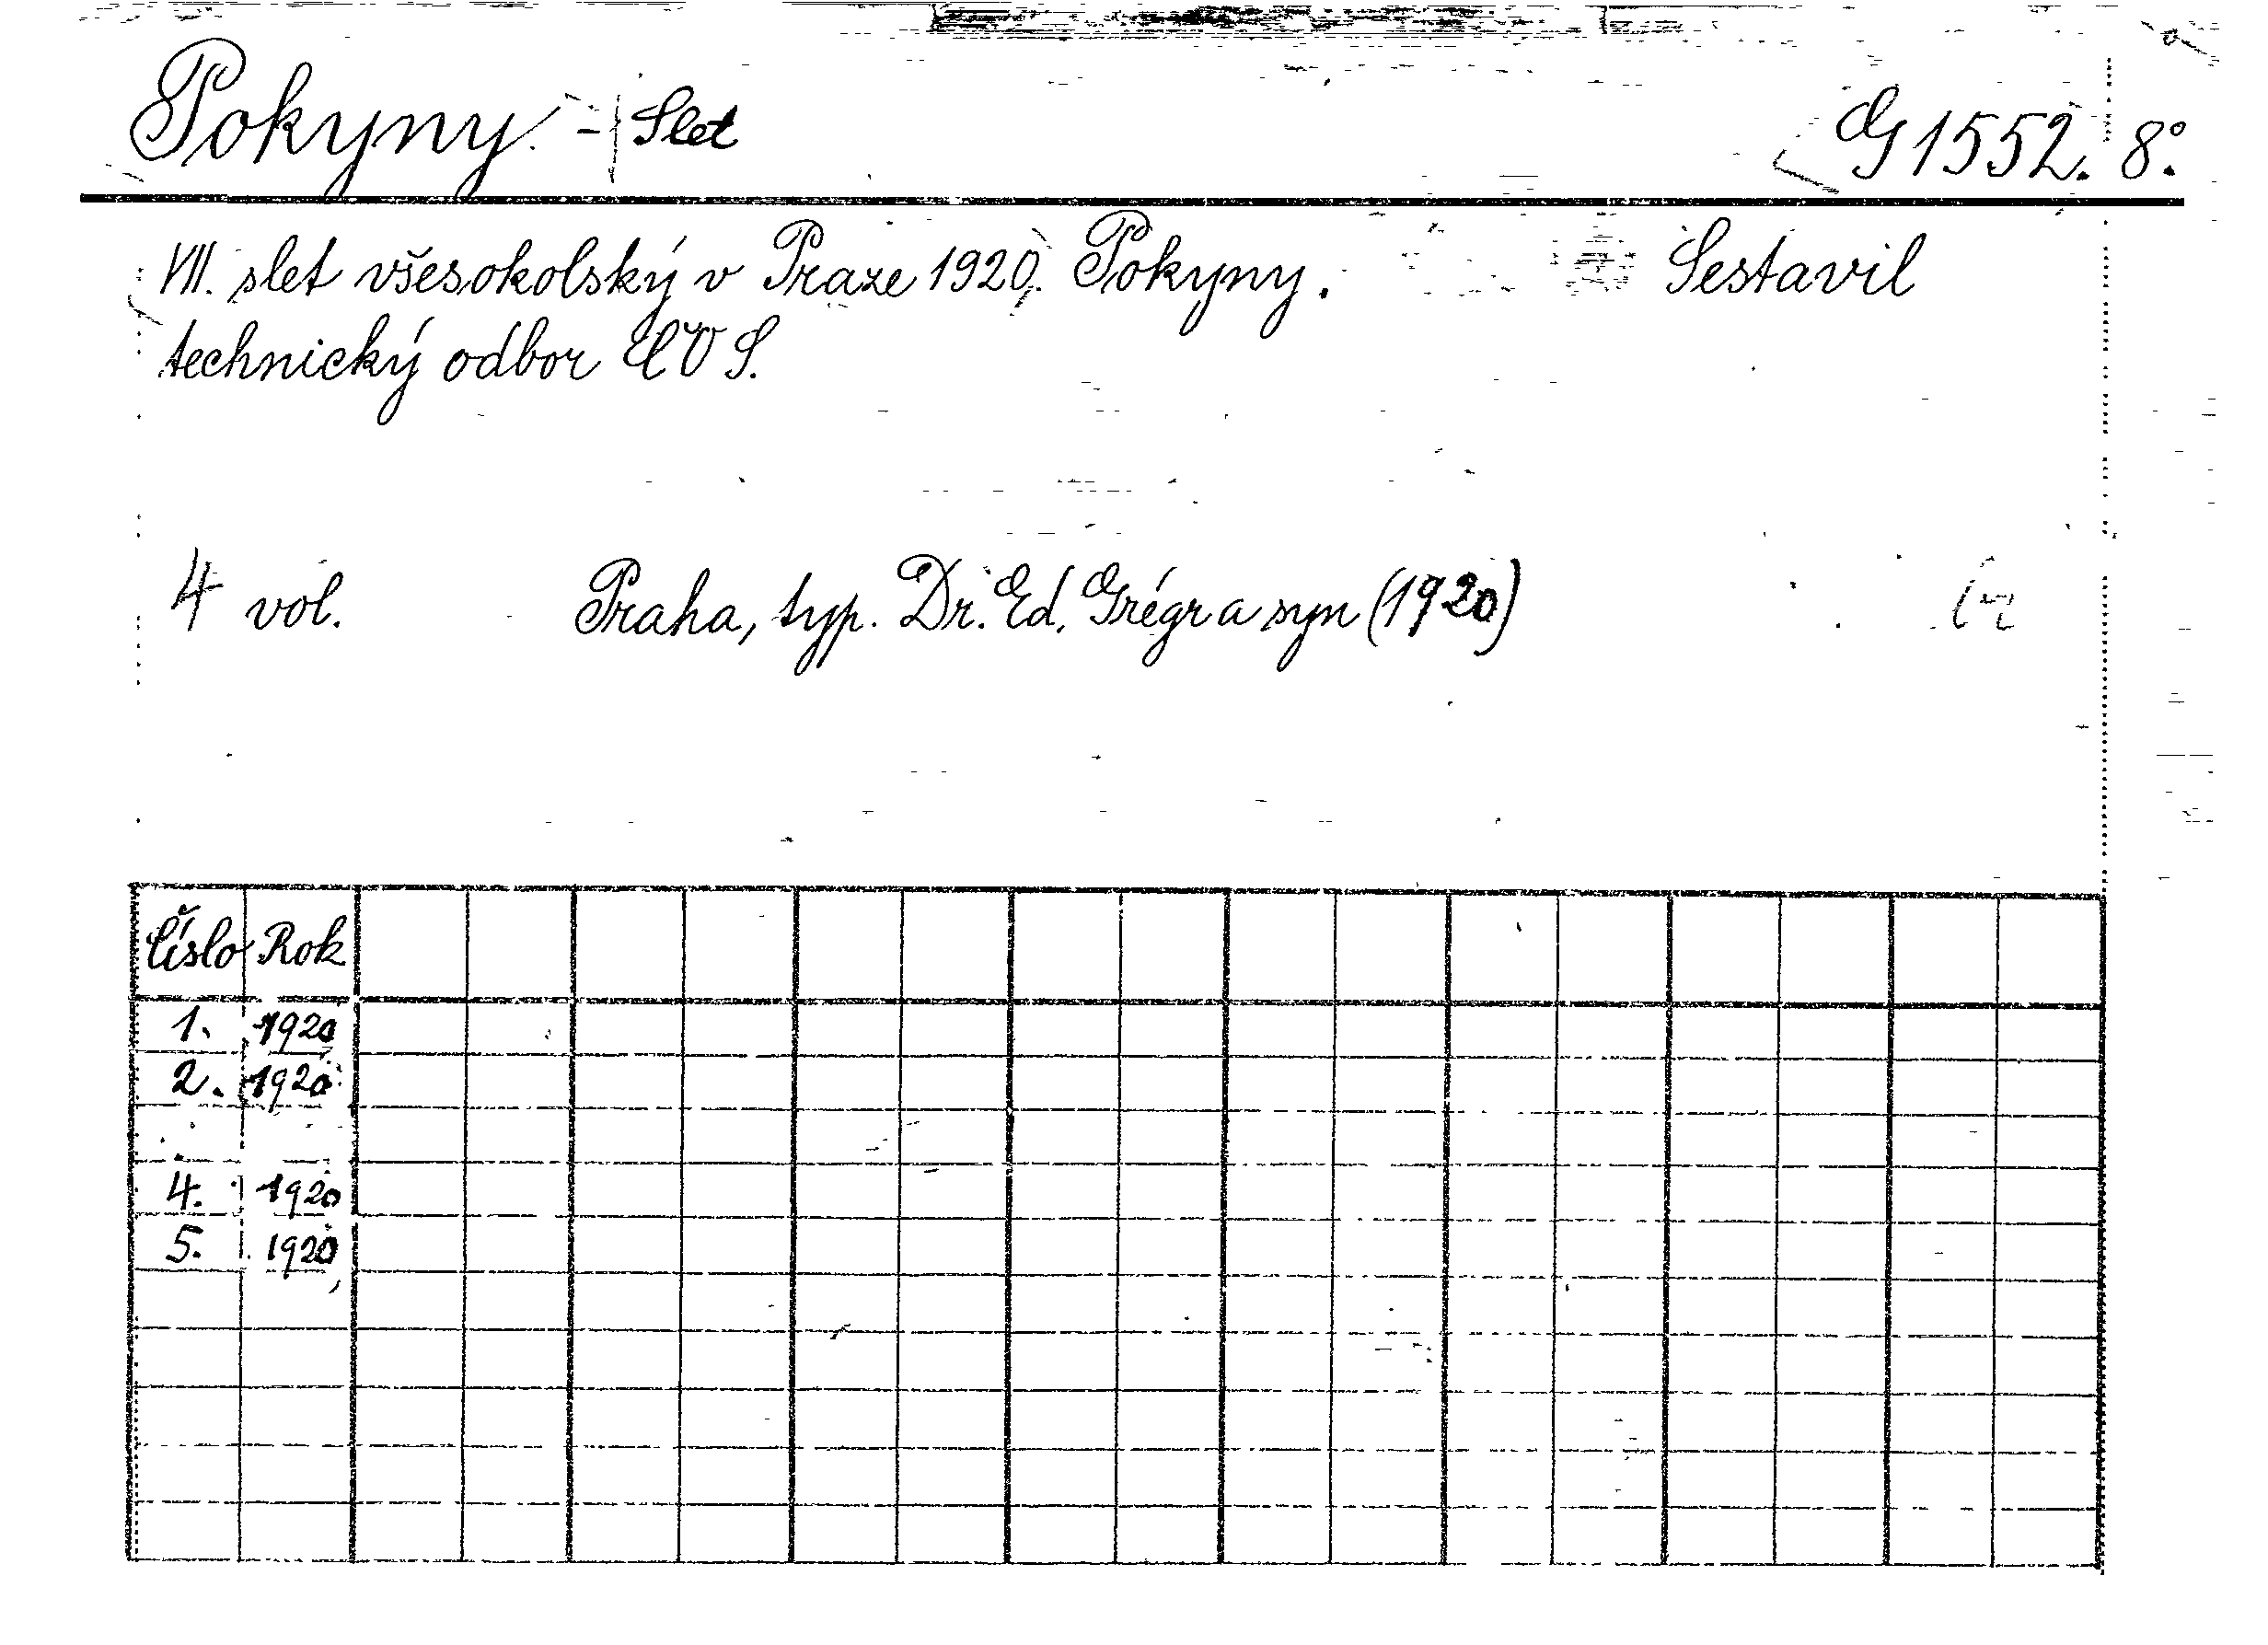 Pokyny. - Slet G 1552. 8°.
VII. slet všesokolský v Praze 1920. Pokyny. Sestavil
technický odbor ČOS.
4 vol. Praha, typ. Dr. Ed. Grégr a syn (1920)
Číslo Rok
1. 1920
2. 1920
4. 1920
5. 1920